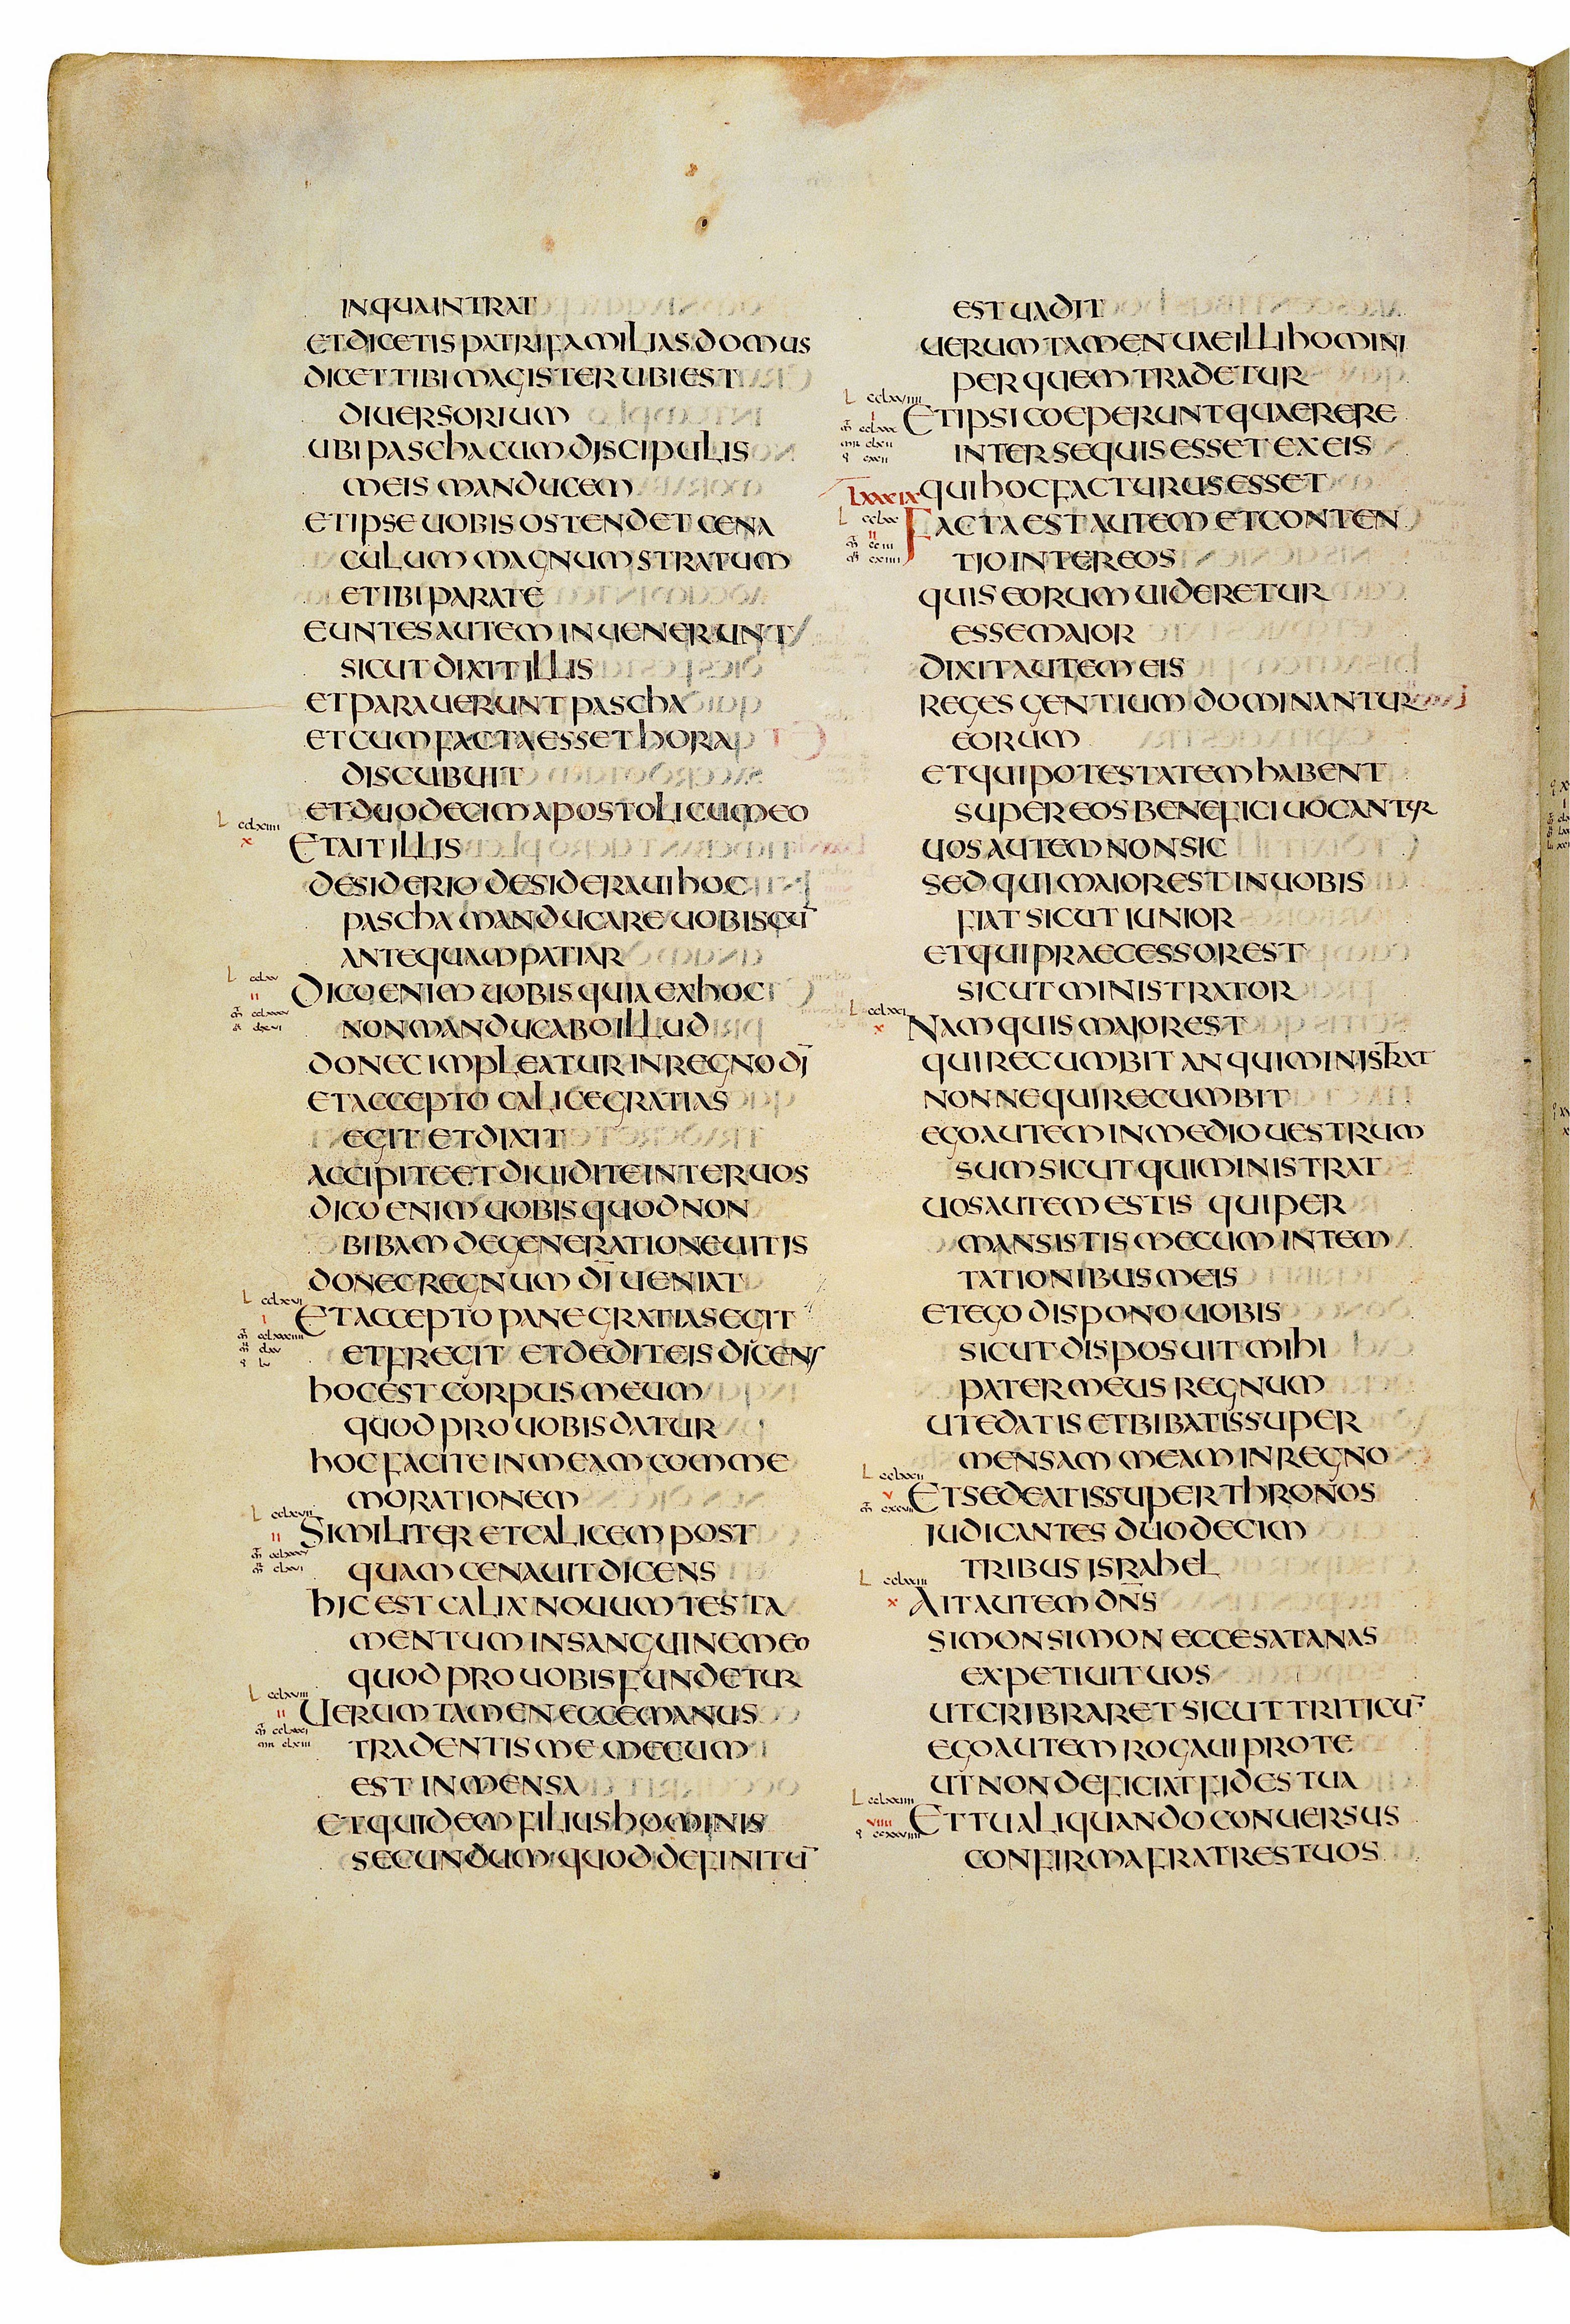 INQUAINTRAT
ETDICETIS PATRIFAMILIAS DOMUS
DICET TIBI MAGISTER UBI EST
DIUERSORIUM
UBI PASCHA CUM DISCIPULIS
MEIS MANDUCEM
ET IPSE UOBIS OSTENDET CENA
CULUM MAGNUM STRATUM
ET IBI PARATE
EUNTES AUTEM INUENERUNT
SICUT DIXIT ILLIS
ET PARAUERUNT PASCHA
ET CUM FACTA ESSET HORA
DISCUBUIT
ET DUODECIM APOSTOLI CUM EO
L cclxiiii
x
ET AIT ILLIS
DESIDERIO DESIDERAUI HOC
PASCHA MANDUCARE UOBISCU̅
ANTEQUAM PATIAR
L cclxv
II
DICO ENIM UOBIS QUIA EX HOC
NON MANDUCABO ILLUD
DONEC IMPLEATUR IN REGNO DI̅
ET ACCEPTO CALICE GRATIAS
EGIT ET DIXIT
ACCIPITE ET DIUIDITE INTER UOS
DICO ENIM UOBIS QUOD NON
BIBAM DE GENERATIONE UITIS
DONEC REGNUM DI̅ UENIAT
L cclxvi
I
ET ACCEPTO PANE GRATIAS EGIT
ET FREGIT ET DEDIT EIS DICENS
HOC EST CORPUS MEUM
QUOD PRO UOBIS DATUR
HOC FACITE IN MEAM COMME
MORATIONEM
L cclxvii
II
SIMILITER ET CALICEM POST
QUAM CENAUIT DICENS
HIC EST CALIX NOUUM TESTA
MENTUM IN SANGUINE MEO
QUOD PRO UOBIS FUNDETUR
L cclxviii
II
UERUM TAMEN ECCE MANUS
TRADENTIS ME MECUM
EST IN MENSA
ET QUIDEM FILIUS HOMINIS
SECUNDUM QUOD DEFINITU̅
EST UADIT
UERUM TAMEN UAE ILLI HOMINI
PER QUEM TRADETUR
L cclxviiii
I
ET IPSI COEPERUNT QUAERERE
INTER SE QUIS ESSET EX EIS
QUI HOC FACTURUS ESSET
LXXXIX
L cclxx
II
FACTA EST AUTEM ET CONTEN
TIO INTER EOS
QUIS EORUM UIDERETUR
ESSE MAIOR
DIXIT AUTEM EIS
REGES GENTIUM DOMINANTUR
EORUM
ET QUI POTESTATEM HABENT
SUPER EOS BENEFICI UOCANTUR
UOS AUTEM NON SIC
SED QUI MAIOR EST IN UOBIS
FIAT SICUT IUNIOR
ET QUI PRAECESSOR EST
SICUT MINISTRATOR
L cclxxi
x
NAM QUIS MAIOR EST
QUI RECUMBIT AN QUI MINISTRAT
NONNE QUI RECUMBIT
EGO AUTEM IN MEDIO UESTRUM
SUM SICUT QUI MINISTRAT
UOS AUTEM ESTIS QUI PER
MANSISTIS MECUM IN TEM
TATIONIBUS MEIS
ET EGO DISPONO UOBIS
SICUT DISPOSUIT MIHI
PATER MEUS REGNUM
UT EDATIS ET BIBATIS SUPER
MENSAM MEAM IN REGNO
L cclxxii
V
ET SEDEATIS SUPER THRONOS
IUDICANTES DUODECIM
TRIBUS ISRAHEL
L cclxxiii
x
AIT AUTEM DN̅S
SIMON SIMON ECCE SATANAS
EXPETIUIT UOS
UT CRIBRARET SICUT TRITICU̅
EGO AUTEM ROGAUI PRO TE
UT NON DEFICIAT FIDES TUA
L cclxxiiii
VIIII
ET TU ALIQUANDO CONUERSUS
CONFIRMA FRATRES TUOS